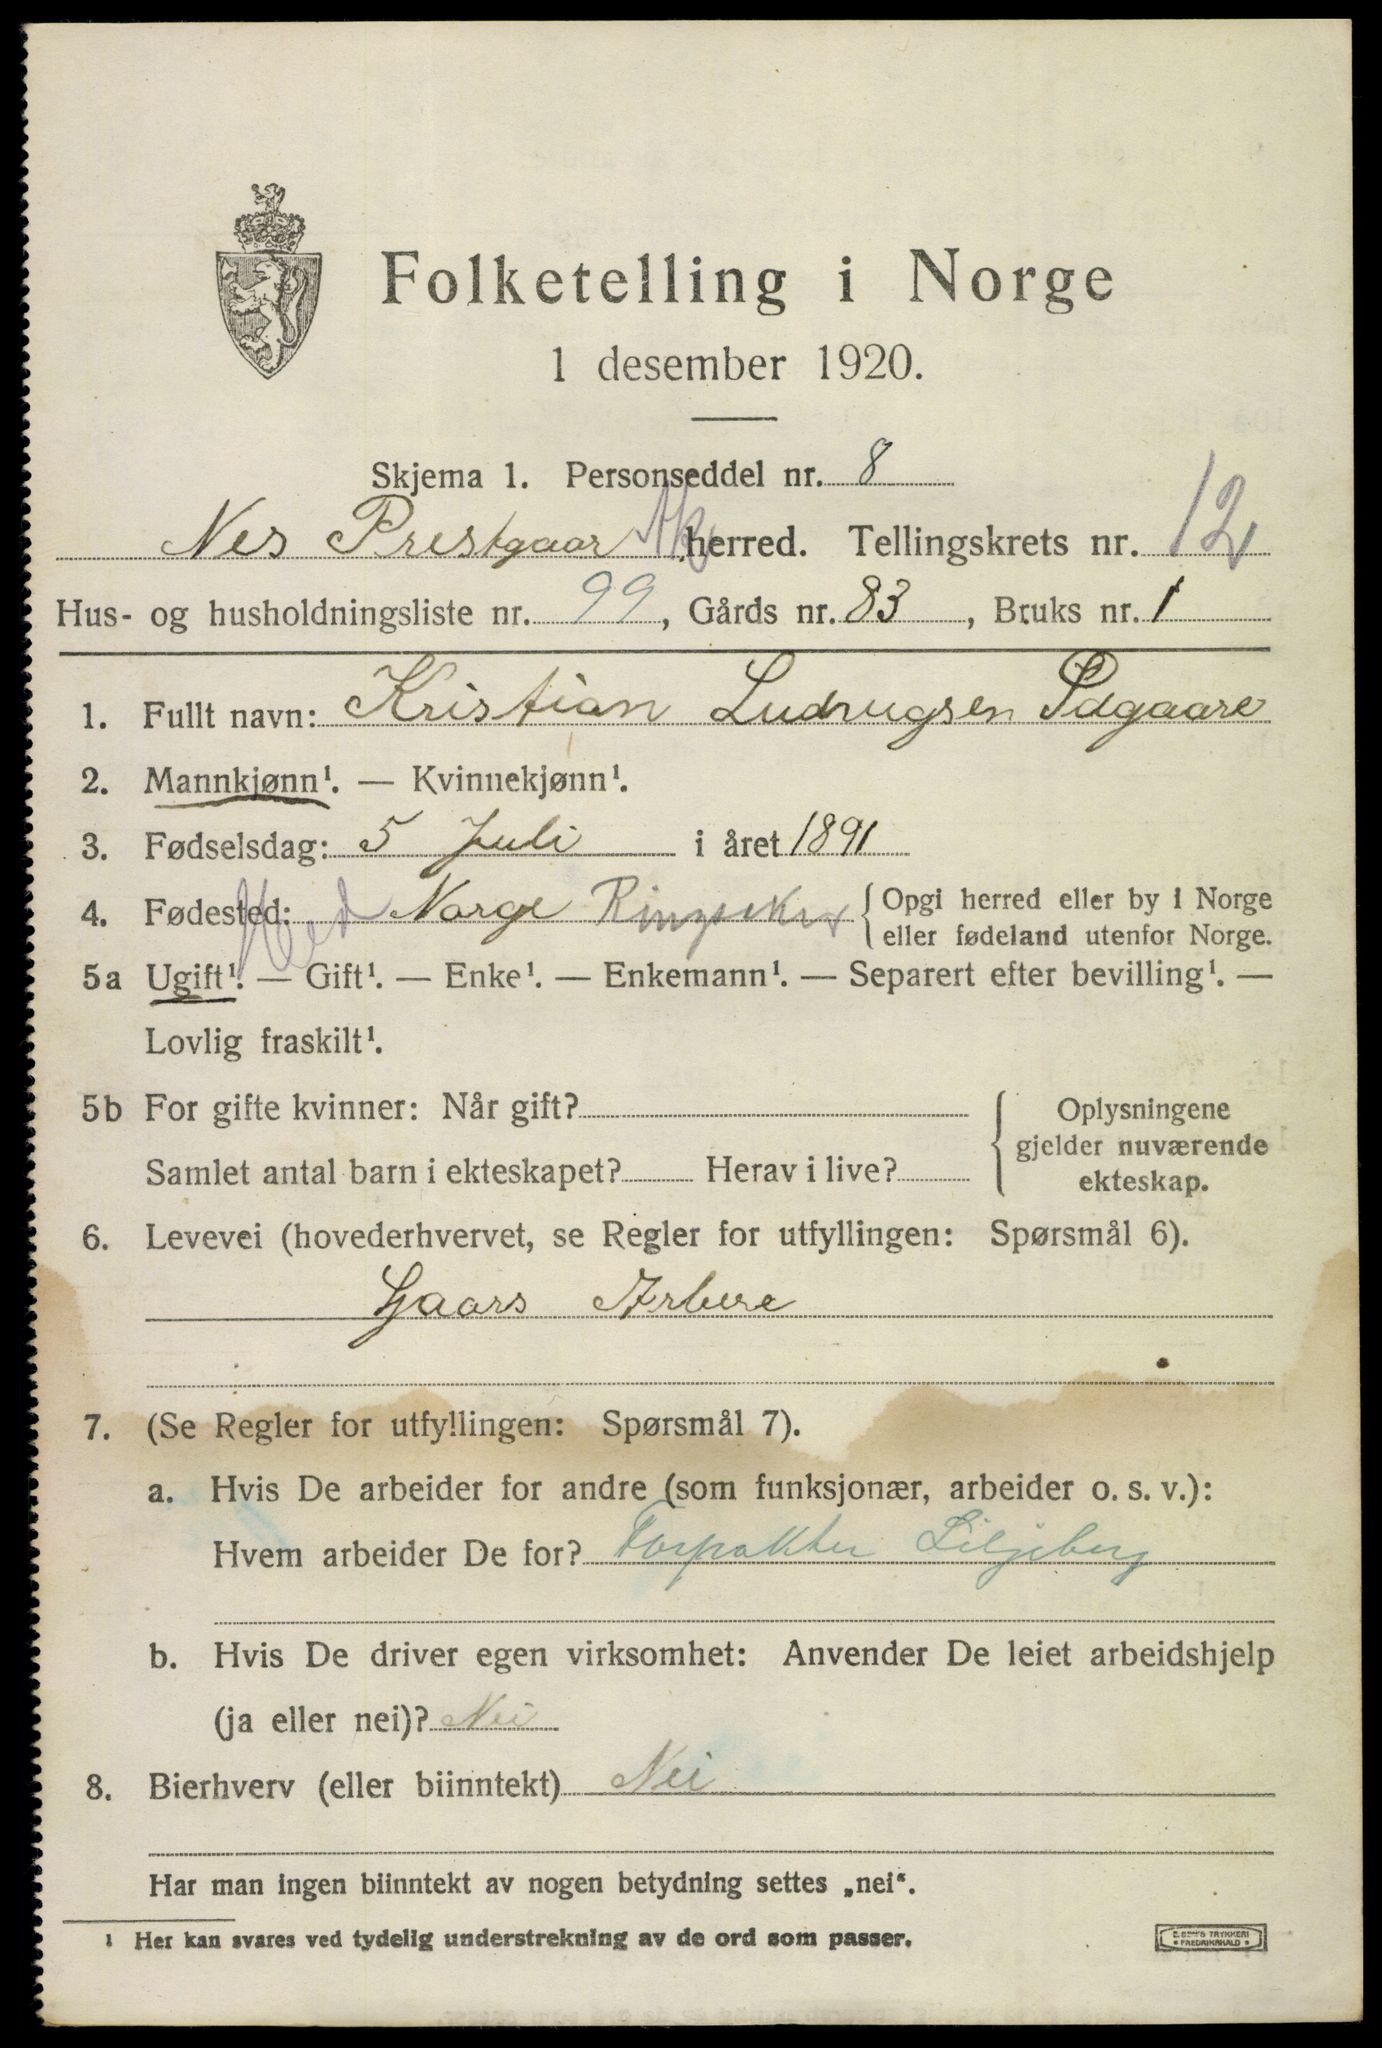 Folketelling i Norge
1 desember 1920.
Skjema 1. Personseddel nr. 8
Nes Prestgaar Ak herred. Tellingskrets nr. 12
Hus- og husholdningsliste nr. 99, Gårds nr. 83, Bruks nr. 1
1. Fullt navn: Kristian Ludvugsen
2. Mannkjønn¹. — Kvinnekjønn¹.
3. Fødselsdag: 5 Juli i året 1891
4. Fødested: Hed Norge Ringsaker {Opgi herred eller by i Norge
eller fødeland utenfor Norge.
5a Ugift¹. — Gift¹. — Enke¹. — Enkemann¹. — Separert efter bevilling¹. —
Lovlig fraskilt¹.
5b For gifte kvinner: Når gift?
Samlet antal barn i ekteskapet? Herav i live?
Oplysningene
gjelder nuværende
ekteskap.
6. Levevei (hovederhvervet, se Regler for utfyllingen: Spørsmål 6).
Gaars Arbere
7. (Se Regler for utfyllingen: Spørsmål 7).
a. Hvis De arbeider for andre (som funksjonær, arbeider o. s. v.):
Hvem arbeider De for? Forpakter Liljeberg
b. Hvis De driver egen virksomhet: Anvender De leiet arbeidshjelp
(ja eller nei)? Nei
8. Bierhverv (eller biinntekt) Nei
Har man ingen biinntekt av nogen betydning settes „nei“.
1 Her kan svares ved tydelig understrekning av de ord som passer.
TRYKKERI
FREDRIKSHALD